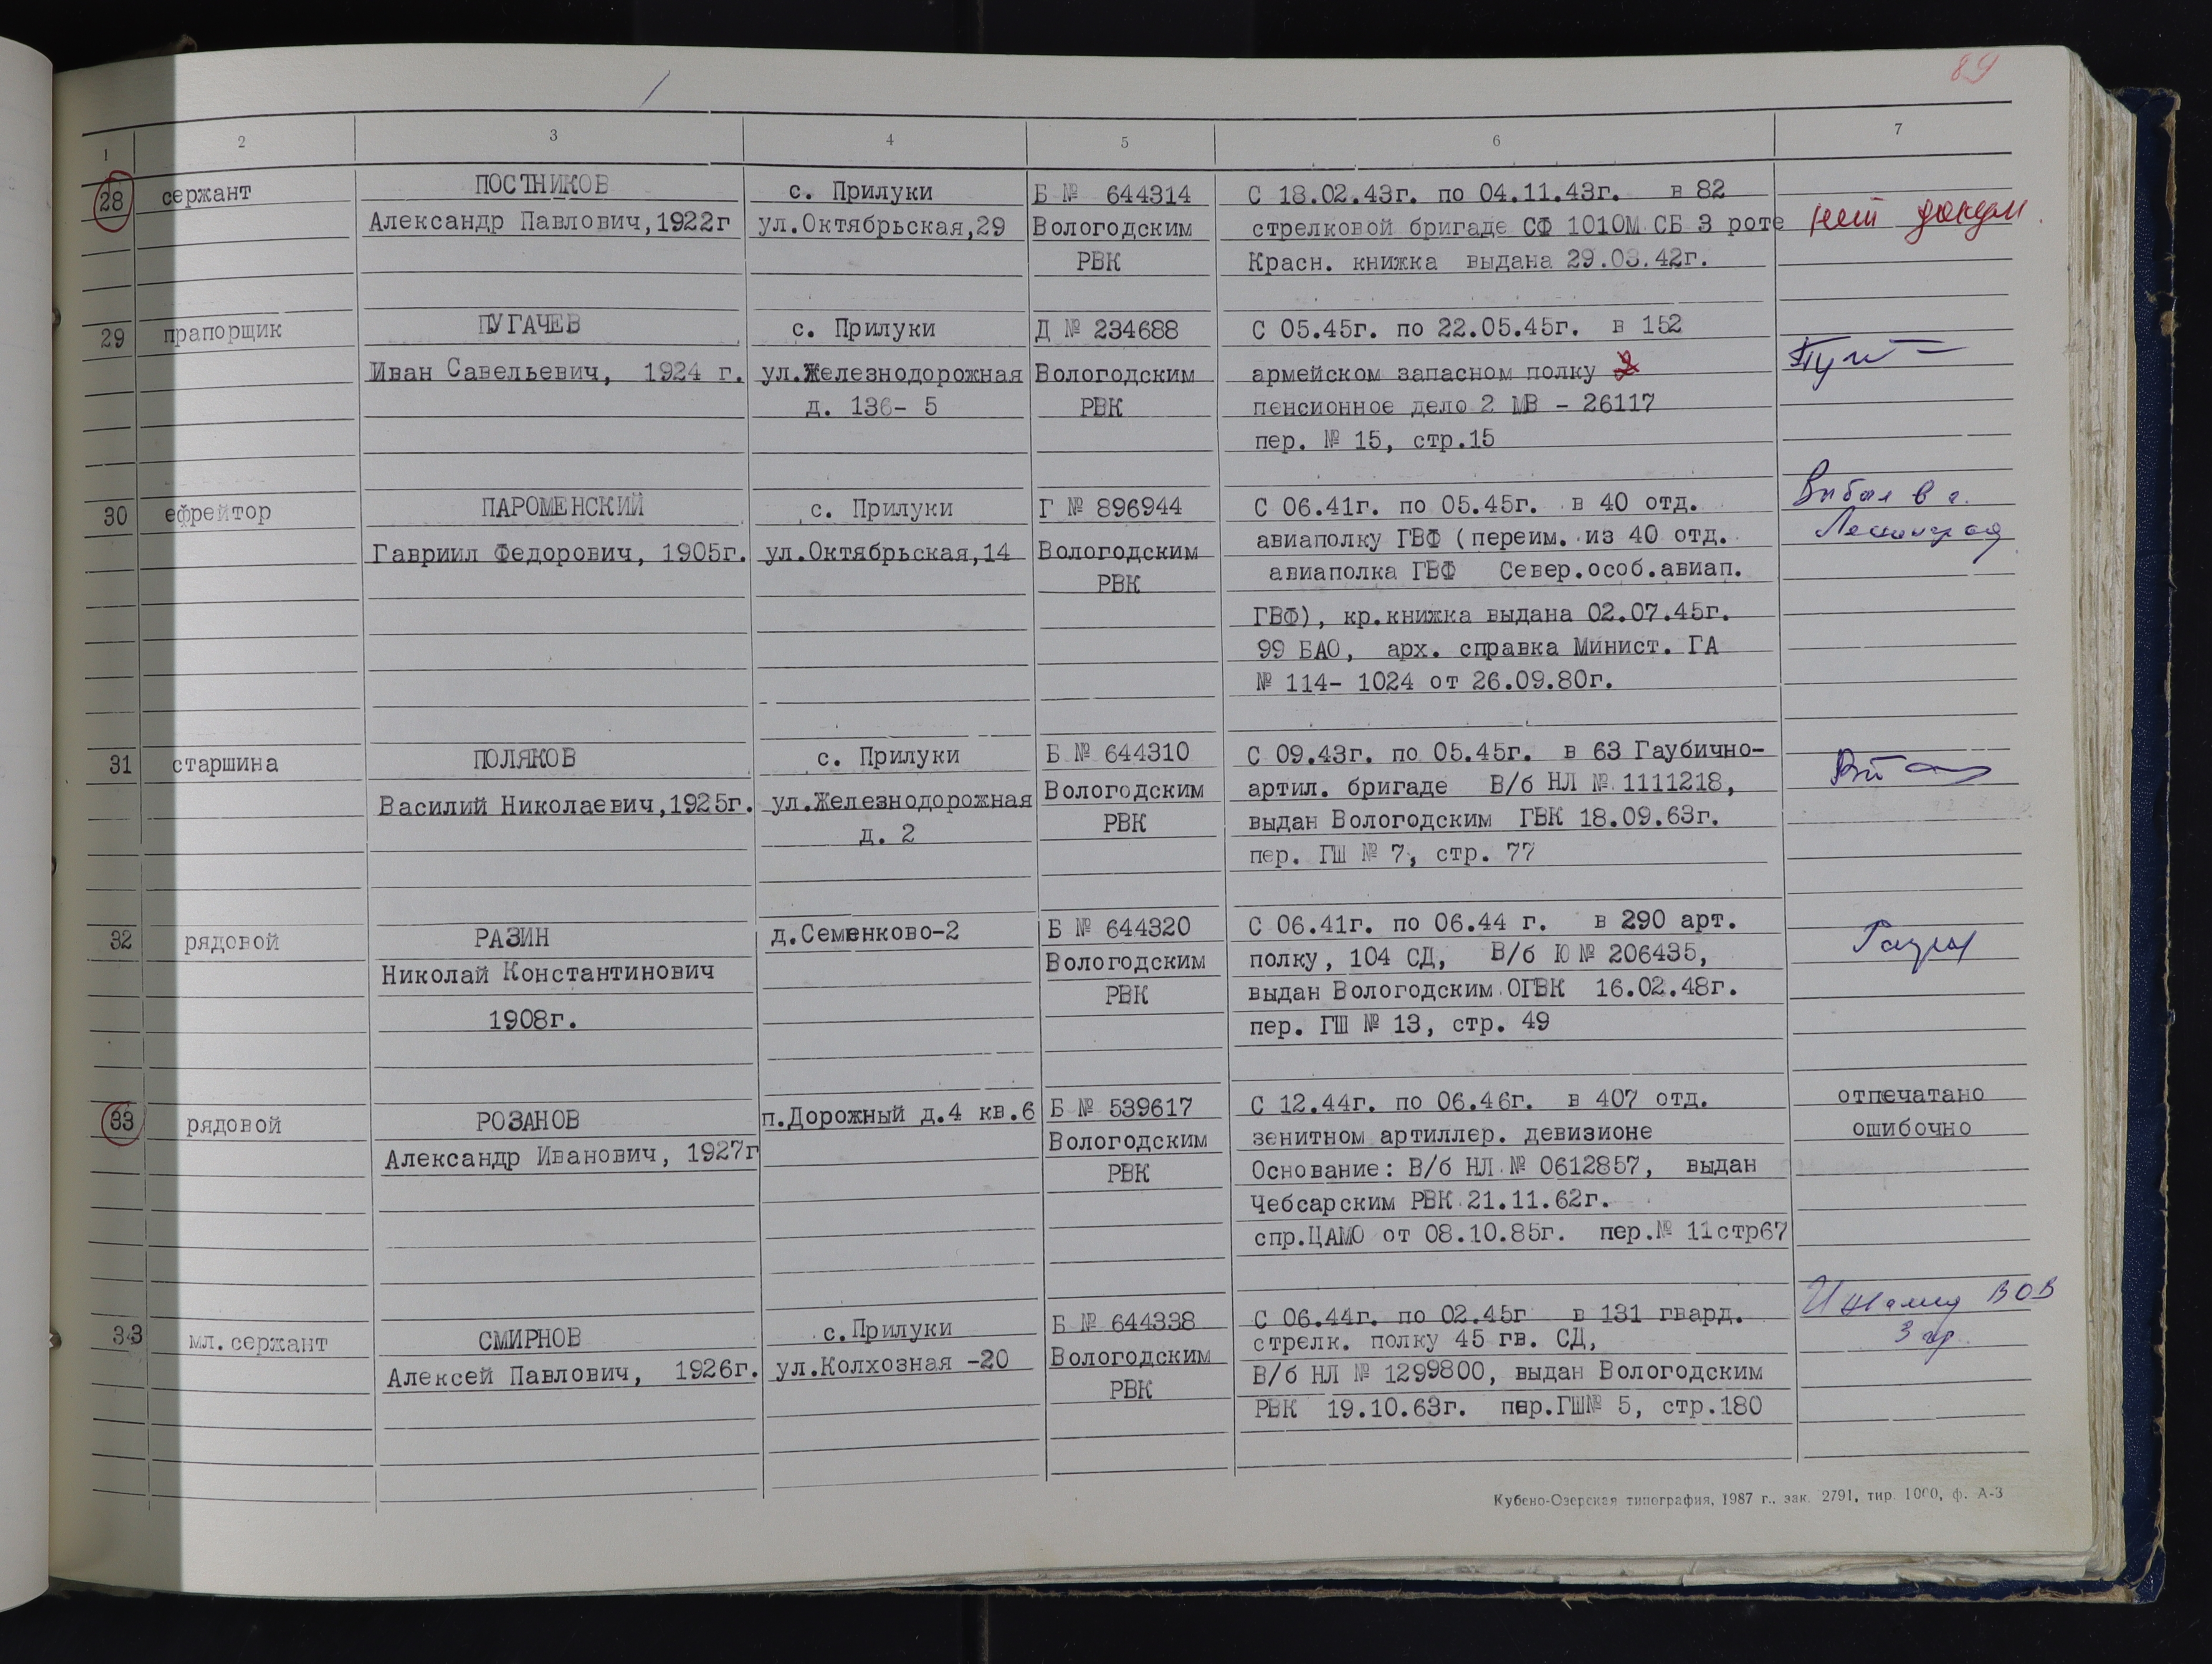 89
1 2 3 4 5 6 7
28 сержант ПОСТНИКОВ с. Прилуки Б № 644314 С 18.02.43г. по 04.11.43г. в 82
Александр Павлович,1922г ул.Октябрьская,29 Вологодским стрелковой бригаде СФ 1010М СБ 3 роте нет
РВК Красн. книжка выдана 29.03.42г.
29 прапорщик ПУГАЧЕВ с. Прилуки Д № 234688 С 05.45г. по 22.05.45г. в 152
Иван Савельевич, 1924 г. ул.Железнодорожная Вологодским армейском запасном полку
д. 136- 5 РВК пенсионное дело 2 МВ - 26117
пер. № 15, стр.15
30 ефрейтор ПАРОМЕНСКИЙ с. Прилуки Г № 896944 С 06.41г. по 05.45г. в 40 отд. Выбыл в г.
Гавриил Федорович, 1905г. ул.Октябрьская,14 Вологодским авиаполку ГВФ (переим. из 40 отд. Ленинград
РВК авиаполка ГВФ Север.особ.авиап.
ГВФ), кр.книжка выдана 02.07.45г.
99 БАО, арх. справка Минист. ГА
№ 114- 1024 от 26.09.80г.
31 старшина ПОЛЯКОВ с. Прилуки Б № 644310 С 09.43г. по 05.45г. в 63 Гаубично-
Василий Николаевич,1925г. ул.Железнодорожная Вологодским артил. бригаде В/б НЛ № 1111218,
д. 2 РВК выдан Вологодским ГВК 18.09.63г.
пер. ГШ № 7, стр. 77
32 рядовой РАЗИН д.Семенково-2 Б № 644320 С 06.41г. по 06.44 г. в 290 арт.
Николай Константинович Вологодским полку, 104 СД, В/б Ю № 206435,
1908г. РВК выдан Вологодским ОГВК 16.02.48г.
пер. ГШ № 13, стр. 49
33 рядовой РОЗАНОВ п.Дорожный д.4 кв.6 Б № 539617 С 12.44г. по 06.46г. в 407 отд. отпечатано
Александр Иванович, 1927г Вологодским зенитном артиллер. девизионе ошибочно
РВК Основание: В/б НЛ № 0612857, выдан
Чебсарским РВК 21.11.62г.
спр.ЦАМО от 08.10.85г. пер.№ 11стр67
33 мл.сержант СМИРНОВ с.Прилуки Б № 644338 С 06.44г. по 02.45г в 131 гвард. Инвалид ВОВ
Алексей Павлович, 1926г. ул.Колхозная -20 Вологодским стрелк. полку 45 гв. СД, 3 гр.
РВК В/б НЛ № 1299800, выдан Вологодским
РВК 19.10.63г. пер.ГШ№ 5, стр.180
Кубено-Озерская типография, 1987 г., зак. 2791, тир. 1000, ф. А-3